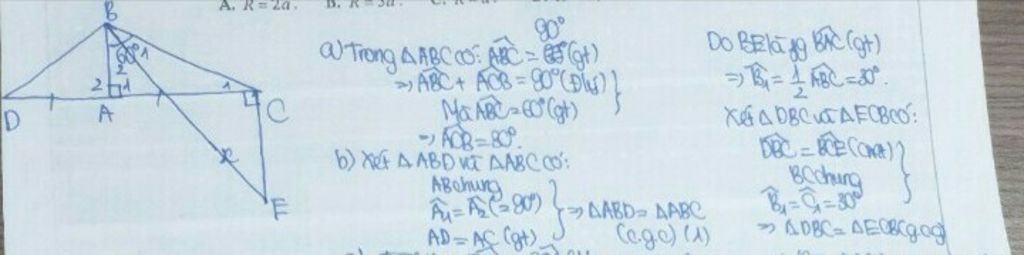 A. R = 2a. B. R = 3a.
B
60° 1
2
2 1
1
D
A
C
E
90°
a) Trong ΔABC có: ABC̑ = (gt)
⇒ ABC̑ + ACB̑ = 90° (Đlý)
Mà ABC̑ = 60° (gt)
⇒ ACB̑ = 30°.
b) Xét ΔABD và ΔABC có:
AB chung
Â₁ = Â₂ (= 90°)
AD = AC (gt)
⇒ ΔABD = ΔABC
(c.g.c) (1)
Do BE là pg BAC̑ (gt)
⇒ B̂₁ = 1/2 ABC̑ = 30°.
Xét ΔDBC và ΔECB có:
DBC̑ = BCȆ (cmt)
BC chung
B̂₁ = Ĉ₁ = 30°
⇒ ΔDBC = ΔECB (g.c.g)